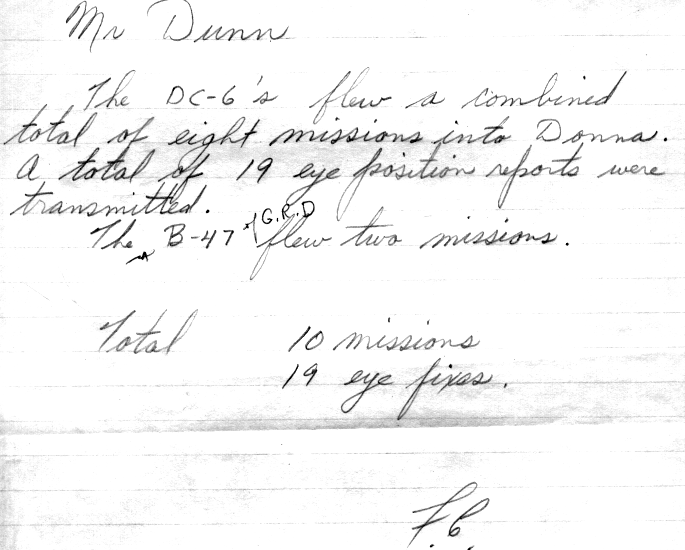 Mr Dunn
The DC-6's flew a combined
total of eight missions into Donna.
A total of 19 eye position reports were
transmitted.
The B-47 of G.R.D flew two missions.
Total 10 missions
19 eye fixes.
F.C.